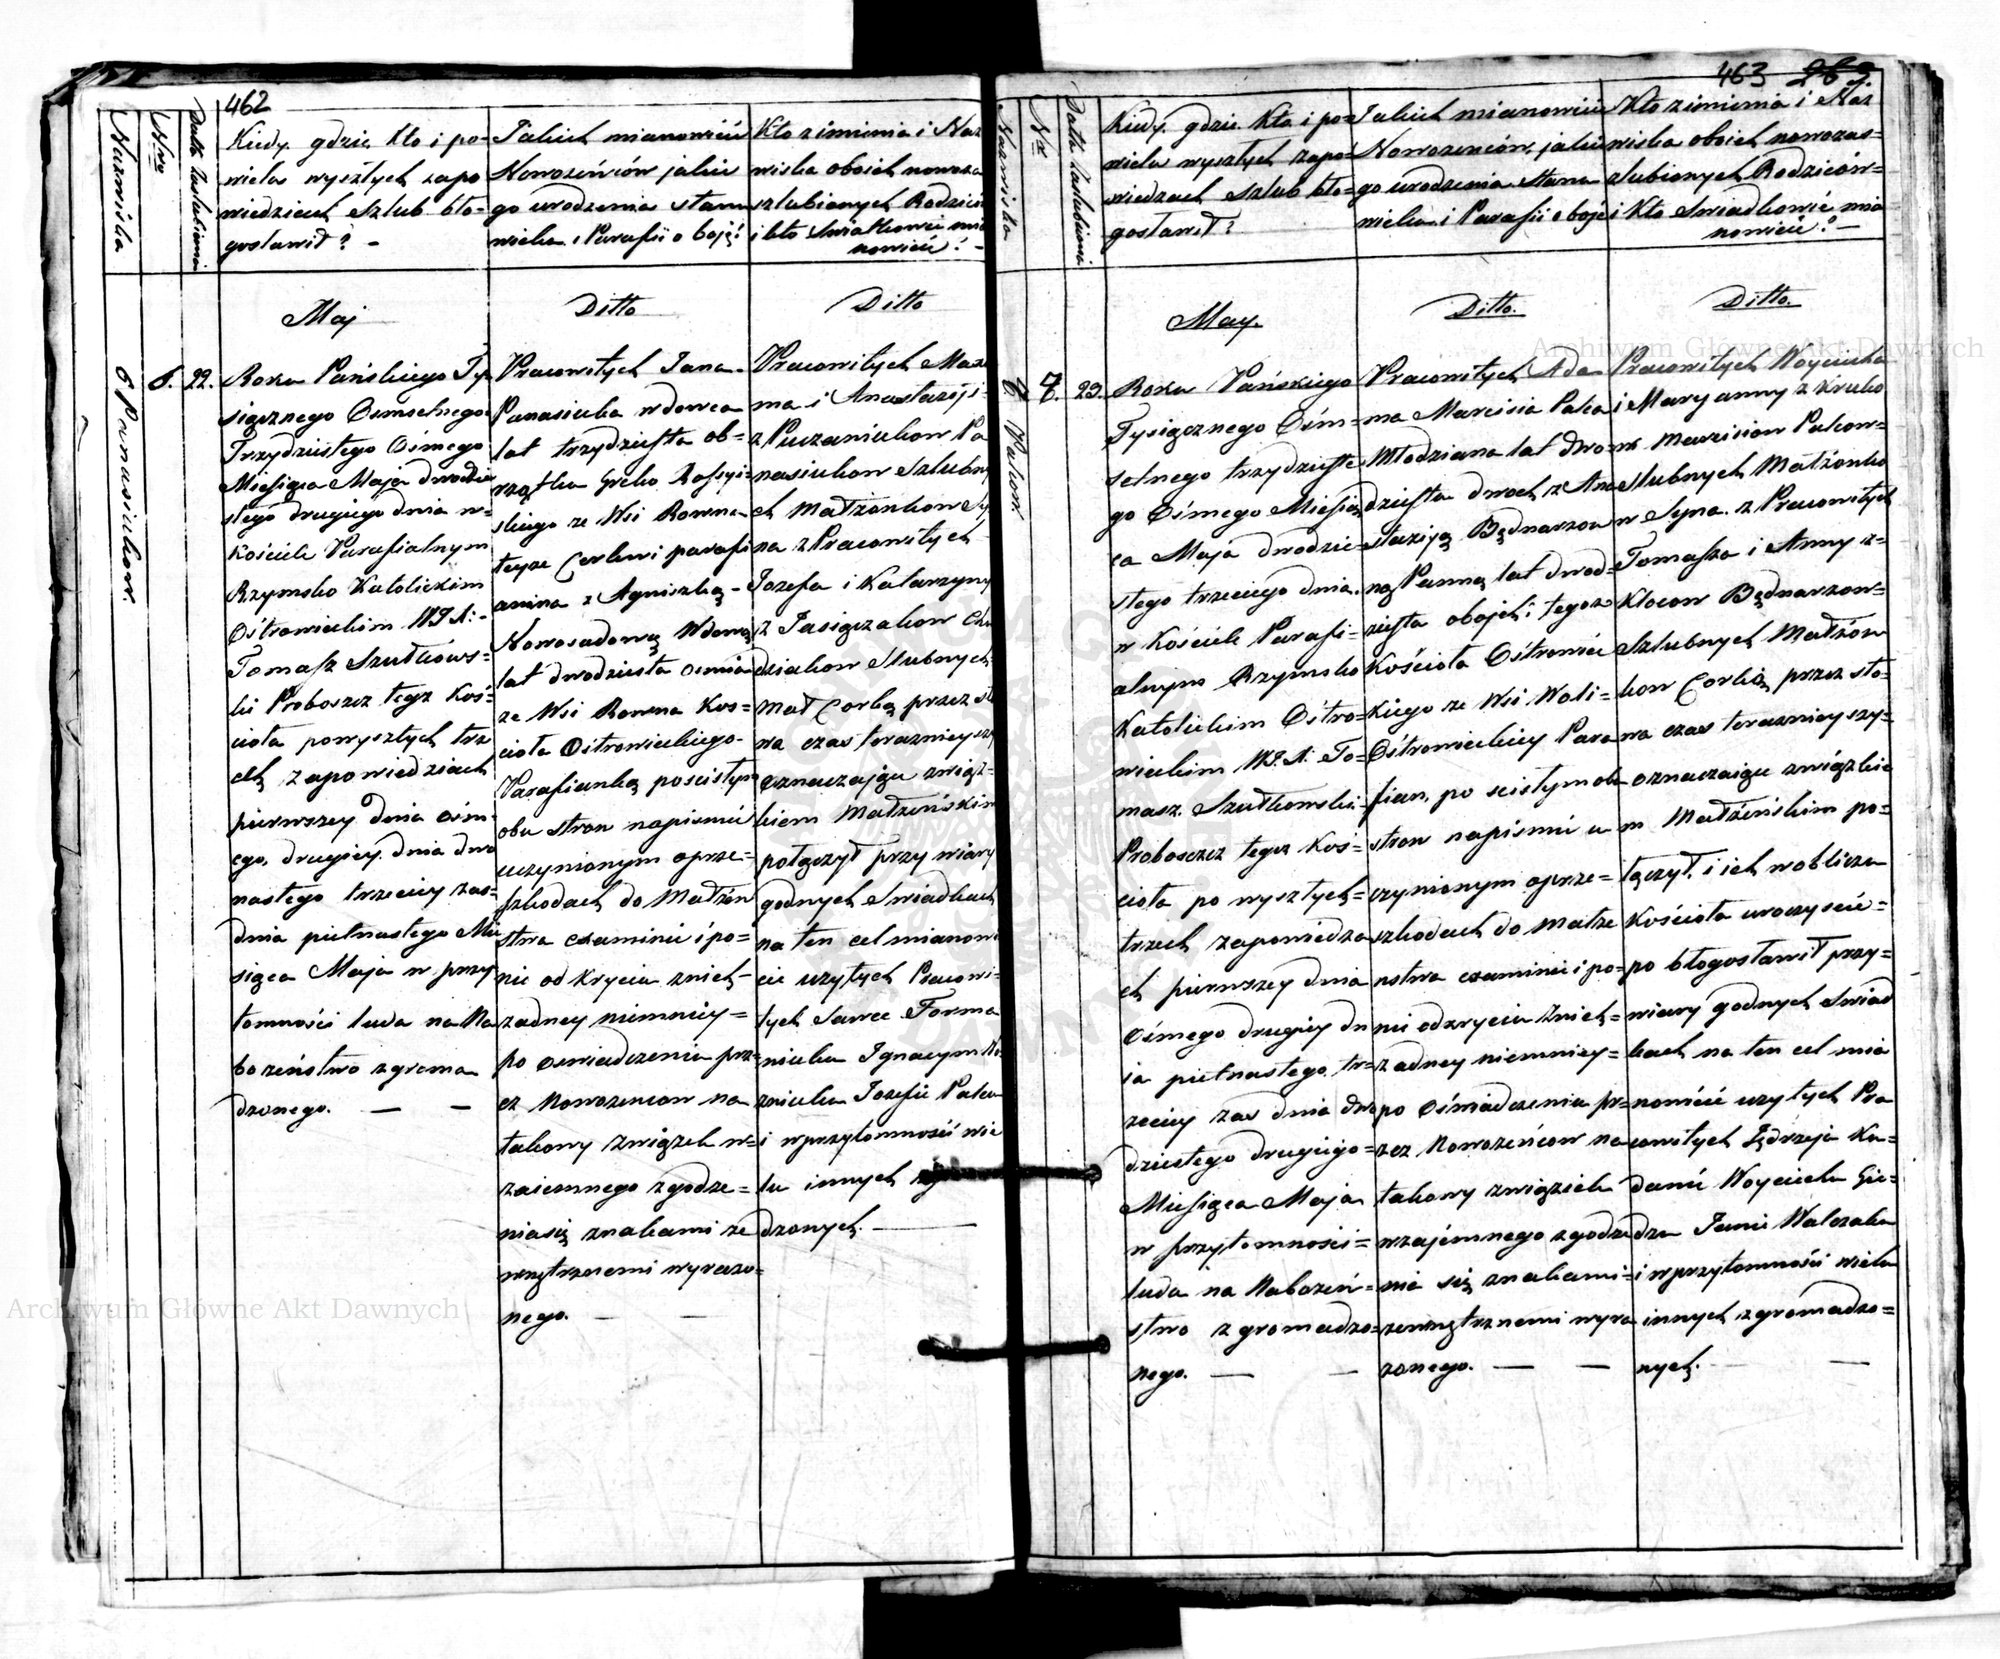 462
Nazwiska
Nro
Data zaslubienia
Kiedy, gdzie, kto i po
wielu wyszłych zapo
wiedziach Szlub bło=
gosławił? -
Jakich mianowicie
Nowożeńców jakie
go urodzenia stanu
wieku i Parafii oboje?
Kto z imienia i Naz
wiska oboich nowoza
szlubionych Rodzicow
i kto Swiadkowie mia
nowicie? -
Maj
Ditto
Ditto
6 Panasiukow.
6.
22.
Roku Pańskiego Ty
siącznego Osmsetnego
Trzydziestego Osmego
Miesiąca Maja dwodzie
stego drugiego dnia w=
Kościele Parafialnym
Rzymsko Katolickim
Ostrowieckim WJX:
Tomasz Szułkows=
ki Proboszcz tegoż Koś=
cioła powyszłych trz
ech zapowiedziach
pierwszey dnia osm=
ego, drugiey dnia dwo
nastego trzeciey zas=
dnia pietnastego Mie
siąca Maja w przy
tomności ludu na Na
bożeństwo zgroma
dzonego. — —
Pracowitych Jana
Panasiuka wdowca
lat trzydziesta ob=
rządku Greko Rossyi=
skiego ze Wsi Rowna
teyze Cerkwi parafi
anina z Agnieszką -
Nowosadową Wdową
lat dwodziesta osmia
ze Wsi Rowna Kos=
cioła Ostrowieckiego-
Parafianką poscisłym
obu stron napismie
uczynionym oprze=
szkodach do Małżeń
stwa examinie i po=
nie odkryciu znich-
zadney niemniey=
po oswiadczeniu prz=
ez Nowozencow na
takowy związek w=
zaiemnego zgodze=
niasię znakami ze
wnętrznemi wyrażo=
nego. — —
Pracowitych Maxi
ma i Anastazyi
z Puczaniukow Pa
nasiukow Szlubny
ch Małżonkow Sy
na z Pracowitych
Jozefa i Katarzyny
z Jasiączakow Chu
dziakow Slubnych
Małż Corką przez sło
wa czas teraznieyszy
oznaczające związ=
kiem Małżeńskim
połączył przy wiary
godnych Swiadkach
na ten cel mianowi
cie użytych Pracowi=
tych Sawce Forma
niuku Ignacym Ko
zniuku Jozefie Paku
i wprzytomności wie
lu innych zg
dzonych. —
463
Nazwiska
Nro
Data zaslubienia
Kiedy, gdzie, Kto i po=
wielu wyszłych zapo=
wiedziach Szlub bło=
gosławił?
Jakich mianowicie
Nowożeńców, jakie
go urodzenia Stanu
wieku i Parafii oboje
Kto z imienia i Naz
wiska oboich nowozas=
zlubionych Rodziców=
i Kto Swiadkowie mia
nowicie? —
May.
Ditto.
Ditto.
Pakow
7.
23.
Roku Pańskiego
Tysiącznego Ośm=
setnego trzydzieste
go Ośmego Miesią
ca Maja dwodzie=
stego trzeciego dnia
w Kościele Parafi=
alnym Rzymsko
Katolickim Ostro=
wieckim WJ.X: To=
masz Szułkowski
Proboszcz tegoz Koś=
cioła po wyszłych=
trzech zapowiedzia
ch pierwszey dnia
Ośmego drugiey dn
ia pietnastego, trz=
zeciey zas dnia dwo
dziestego drugiego=
Miesiąca Maja
w przytomnosci=
ludu na Nabożeń=
stwo zgromadzo=
nego. — —
Pracowitych Ada
ma Marcisia Paka
Młodziana lat dwo=
dziesta dwoch z Ana
stazyą Będnarzow
ną Panną lat dwod=
ziesta obojch tegoz
Kościoła Ostrowiec
kiego ze Wsi Woli=
Ostrowieckiey Para
fian, po scisłym obu
stron napiśmie u
czynionym oprze=
szkodach do Małże
nstwa examinie i po=
nie odkryciu znich=
zadney niemniey=
po Oświadczeniu pr=
zez Nowożeńcow na
takowy związek
wzajemnego zgodze
nia się znakami=
zewnętrznemi wyra
zonego. — —
Pracowitych Woyciecha
i Maryanny z Krubo
w Marcisiow Pakow=
Slubnych Małżonko
w Syna z Pracowitych
Tomasza i Anny z=
Klocow Będnarzow=
Szlubnych Małżon
kow Corką przez sło=
wa czas teraznieyszy=
oznaczaiące związkie
m Małżeńskim po=
łączył i ich wobliczu
Kościoła uroczyscie=
po błogosławił przy=
wiary godnych Swiad
kach na ten cel mia
nowicie użytych Pra
cowitych Jędrzeju Ka=
danie Woyciechu Gie=
dzu Janie Walczaku
i wprzytomności wielu
innych zgromadzo=
nych. — —
Archiwum Główne Akt Dawnych
Archiwum Główne Akt Dawnych